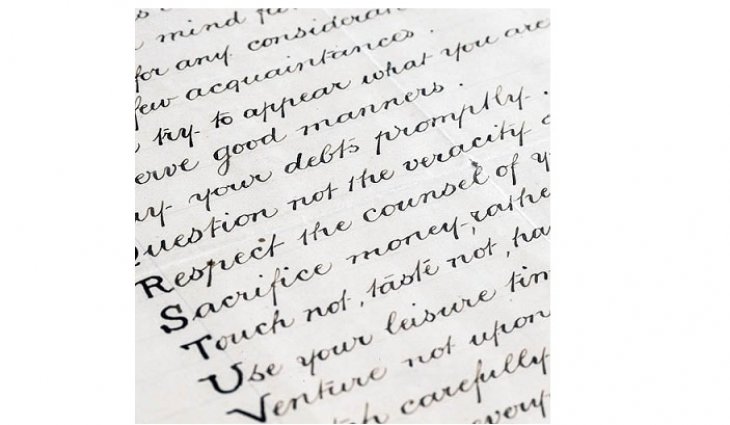 mind
for any consideration
few acquaintances.
try to appear what you are
good manners.
your debts promptly.
Question not the veracity
Respect the counsel of
Sacrifice money, rathe
Touch not, taste not, ha
Use your leisure tim
Venture not upon
carefully
every